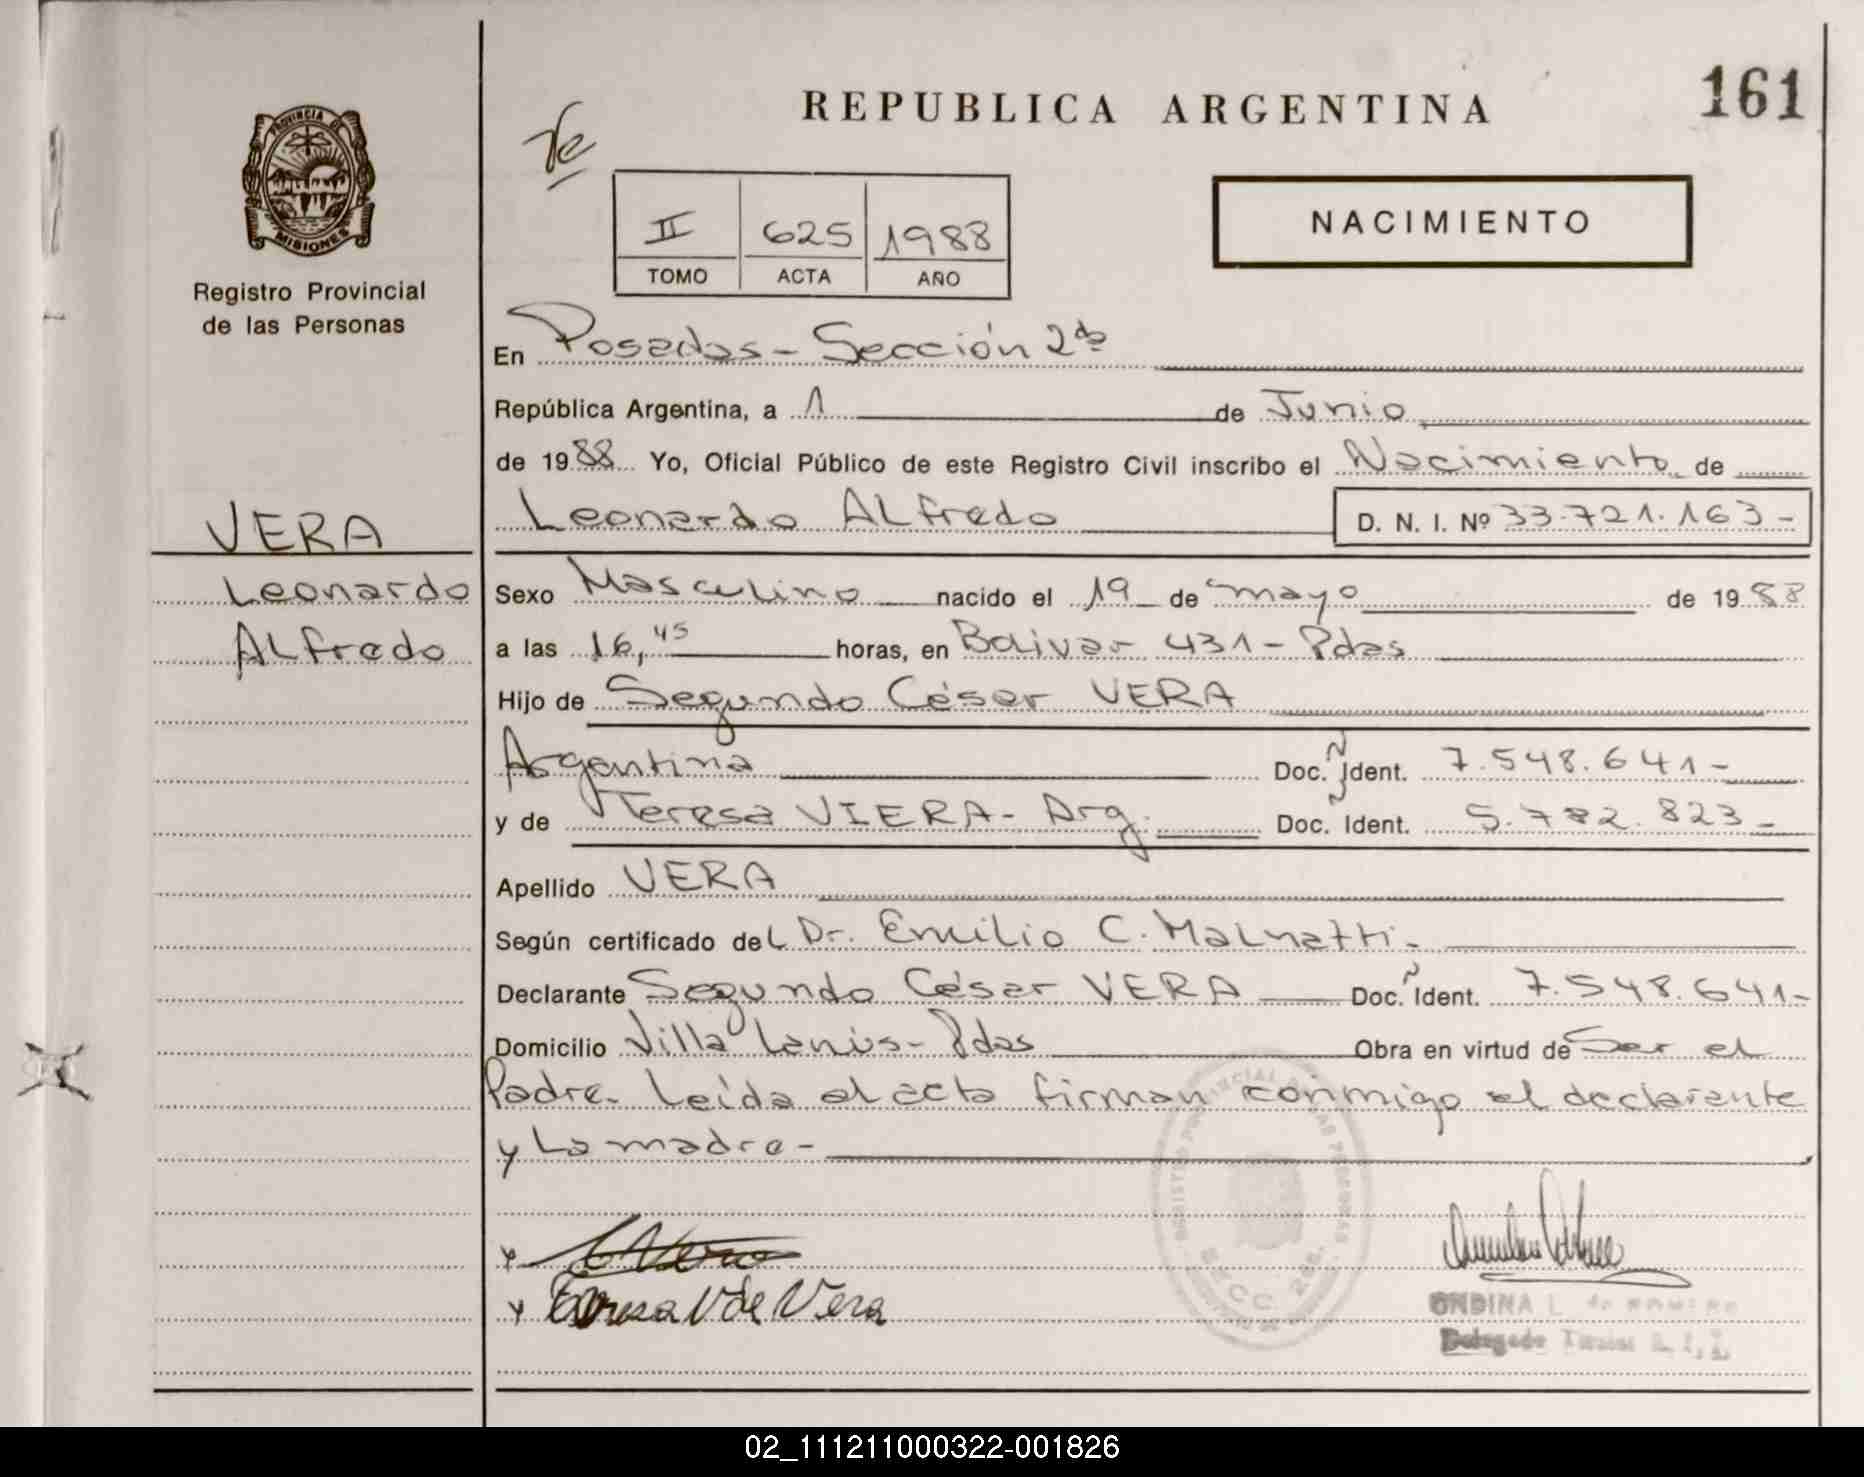 REPUBLICA ARGENTINA
161
PROVINCIA DE
MISIONES
Registro Provincial
de las Personas
II 625 1988
TOMO ACTA AÑO
NACIMIENTO
En Posadas - Sección 2da
República Argentina, a 1 de Junio
de 1988 Yo, Oficial Público de este Registro Civil inscribo el Nacimiento de
Leonardo ALfredo D. N. I. Nº 33.721.163-
VERA
Leonardo
ALfredo
Sexo Masculino nacido el 19 de mayo de 1988
a las 16,45 horas, en Bolivar 431 - Pdas
Hijo de Segundo César VERA
Argentina Doc. Ident. 7.548.641-
y de Teresa VIERA - Arg. Doc. Ident. 5.782.823-
Apellido VERA
Según certificado del Dr. Emilio C. Malnatti -
Declarante Segundo César VERA Doc. Ident. 7.548.641-
Domicilio Villa Lanús - Pdas Obra en virtud de Ser el
Padre. Leída el acta firman conmigo el declarante
y La madre -
Vera
Teresa V de Vera
REGISTRO PROVINCIAL DE LAS PERSONAS
SECC. 2da.
ONDINA L. de
Delegado Titular
02_111211000322-001826